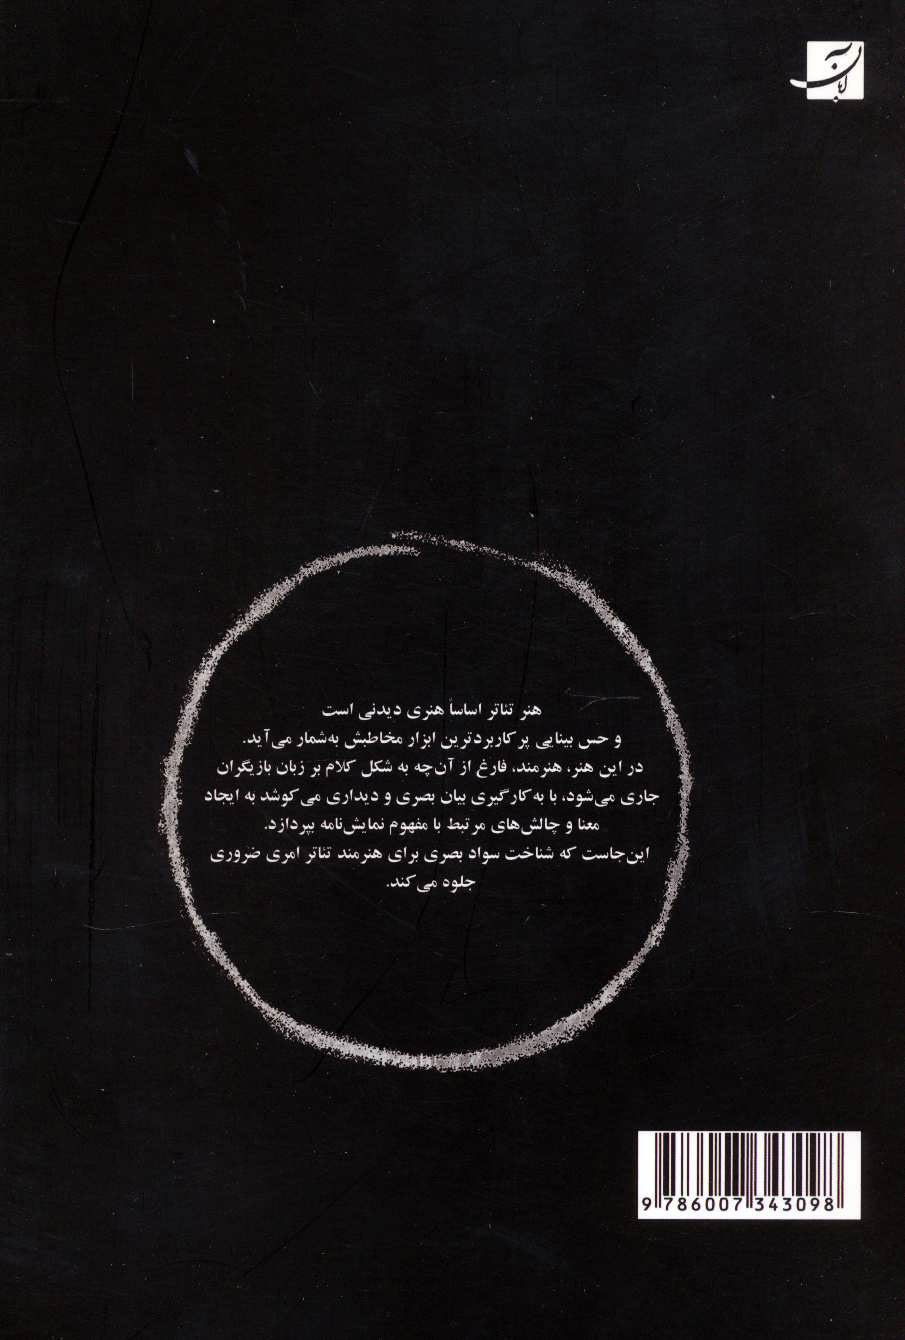 آبان
هنر تئاتر اساساً هنری دیدنی است
و حس بینایی پرکاربردترین ابزار مخاطبش به‌شمار می‌آید.
در این هنر، هنرمند، فارغ از آن‌چه به شکل کلام بر زبان بازیگران
جاری می‌شود، با به‌کارگیری بیان بصری و دیداری می‌کوشد به ایجاد
معنا و چالش‌های مرتبط با مفهوم نمایش‌نامه بپردازد.
این‌جاست که شناخت سواد بصری برای هنرمند تئاتر امری ضروری
جلوه می‌کند.
9 786007 343098